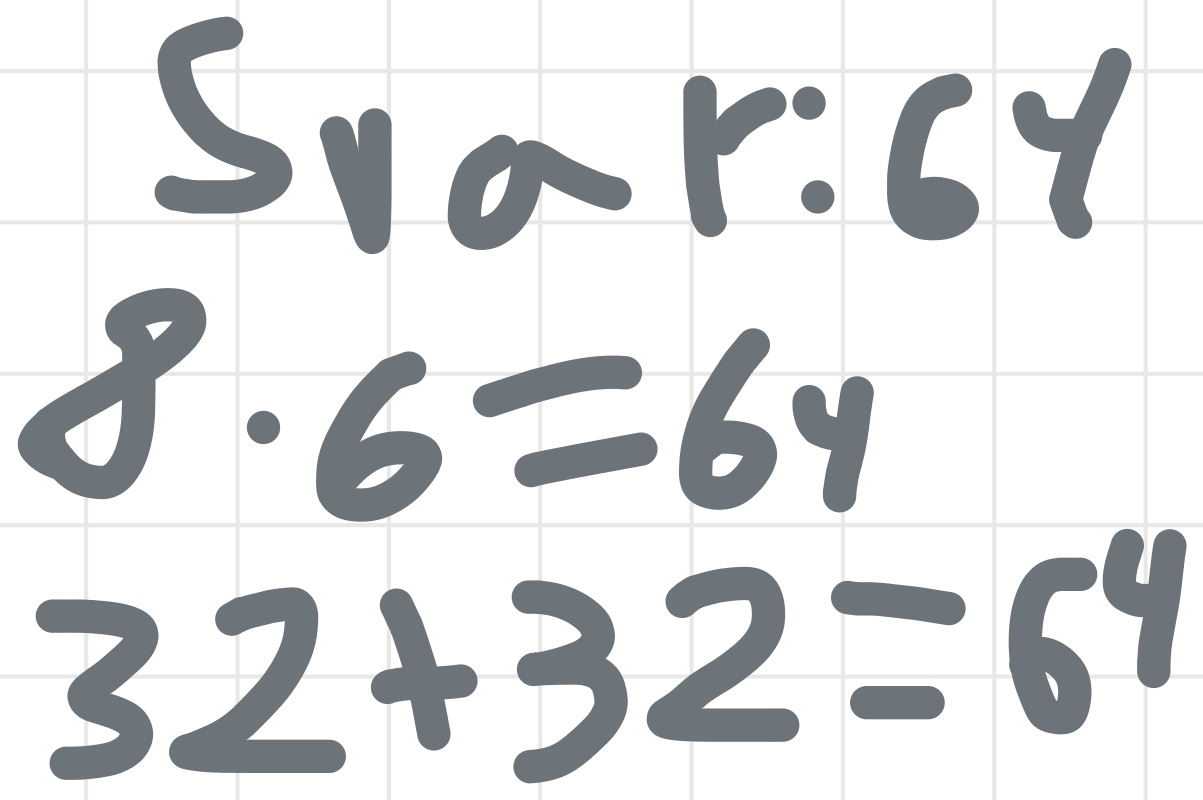 Svar: 64
8 · 6 = 64
32 + 32 = 64